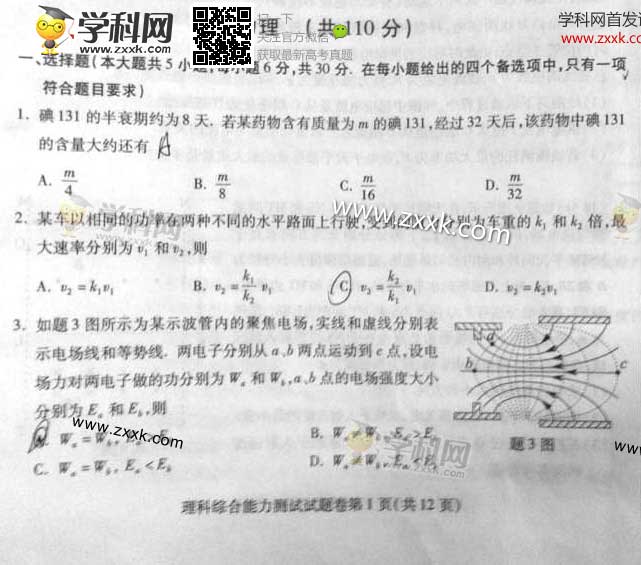 学科网
www.zxxk.com
扫一扫
关注官方微信
获取最新高考真题
学科网首发请
www.zxxk.co
物理 (共110分)
一、选择题(本大题共5小题,每小题6分,共30分. 在每小题给出的四个备选项中,只有一项
符合题目要求)
1. 碘131的半衰期约为8天. 若某药物含有质量为m的碘131,经过32天后,该药物中碘131
的含量大约还有 A
A. m/4 B. m/8 C. m/16 D. m/32
学科网
www.zxxk.com
2. 某车以相同的功率在两种不同的水平路面上行驶,受到的 分别为车重的k₁和k₂倍,最
大速率分别为v₁和v₂,则
A. v₂=k₁v₁ B. v₂=k₁/k₂ v₁ C. v₂=k₂/k₁ v₁ D. v₂=k₂v₁
3. 如题3图所示为某示波管内的聚焦电场,实线和虚线分别表
示电场线和等势线. 两电子分别从a、b两点运动到c点,设电
场力对两电子做的功分别为Wₐ和W_b,a、b点的电场强度大小
分别为Eₐ和E_b,则
www.zxxk.com
学科网
www.zxxk.com
A. Wₐ=W_b, E
B. Wₐ≠W_b, Eₐ>E
C. Wₐ=W_b, Eₐ<E_b
D. Wₐ≠W_b, Eₐ<E_b
a
b
c
题3图
理科综合能力测试试题卷第1页(共12页)